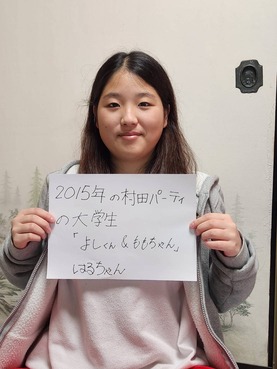 2015年の村田パーティ
の大学生
「よしくん&ももちゃん」
はるちゃん